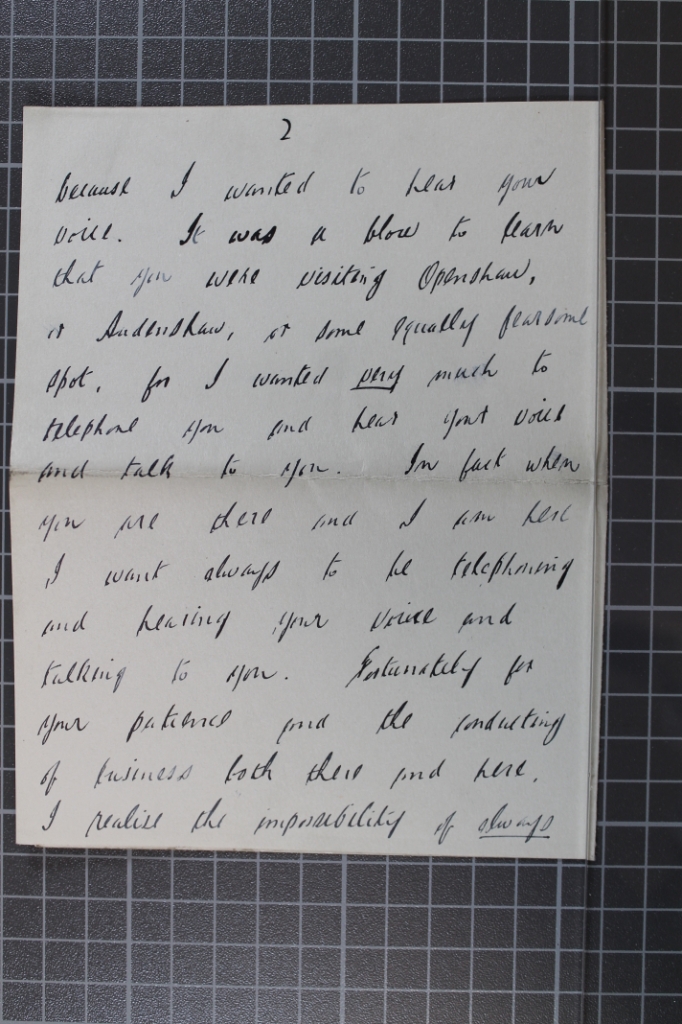 2
because I wanted to hear your
voice. It was a blow to learn
that you were visiting Openshaw,
or Audenshaw, or some equally fearsome
spot, for I wanted very much to
telephone you and hear your voice
and talk to you. In fact when
you are there and I am here
I want always to be telephoning
and hearing your voice and
talking to you. Fortunately for
your patience and the conducting
of business both there and here,
I realise the impossibility of always